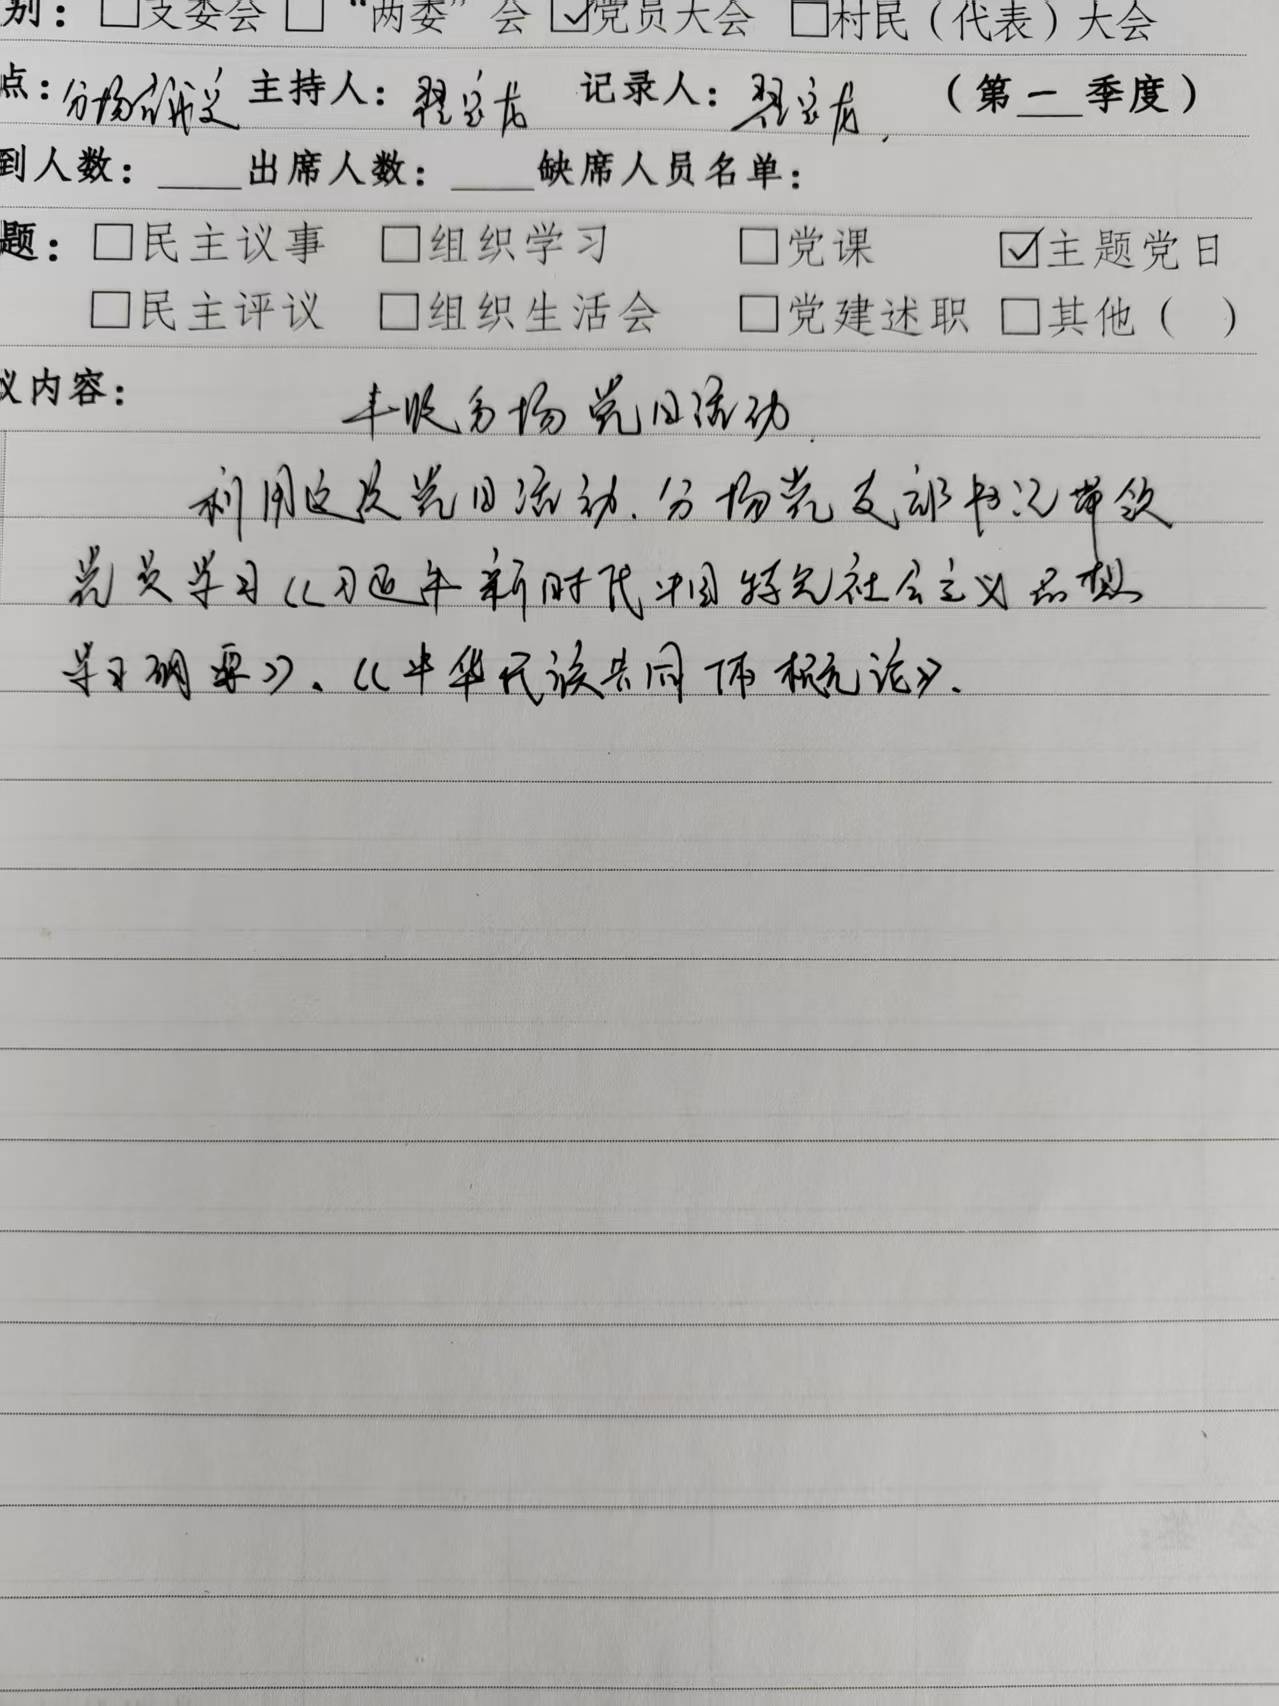 别：□支委会 □ “两委”会 ☑党员大会 □村民（代表）大会
点：分场会议室 主持人：翟宝龙 记录人：翟宝龙 （第一季度）
到人数：____出席人数：____缺席人员名单：
题：□民主议事 □组织学习 □党课 ☑主题党日
□民主评议 □组织生活会 □党建述职 □其他（ ）
议内容：
丰收分场党日活动
利用这次党日活动.分场党支部书记带领
党员学习《习近平新时代中国特色社会主义思想
学习纲要》、《中华民族共同体概论》.